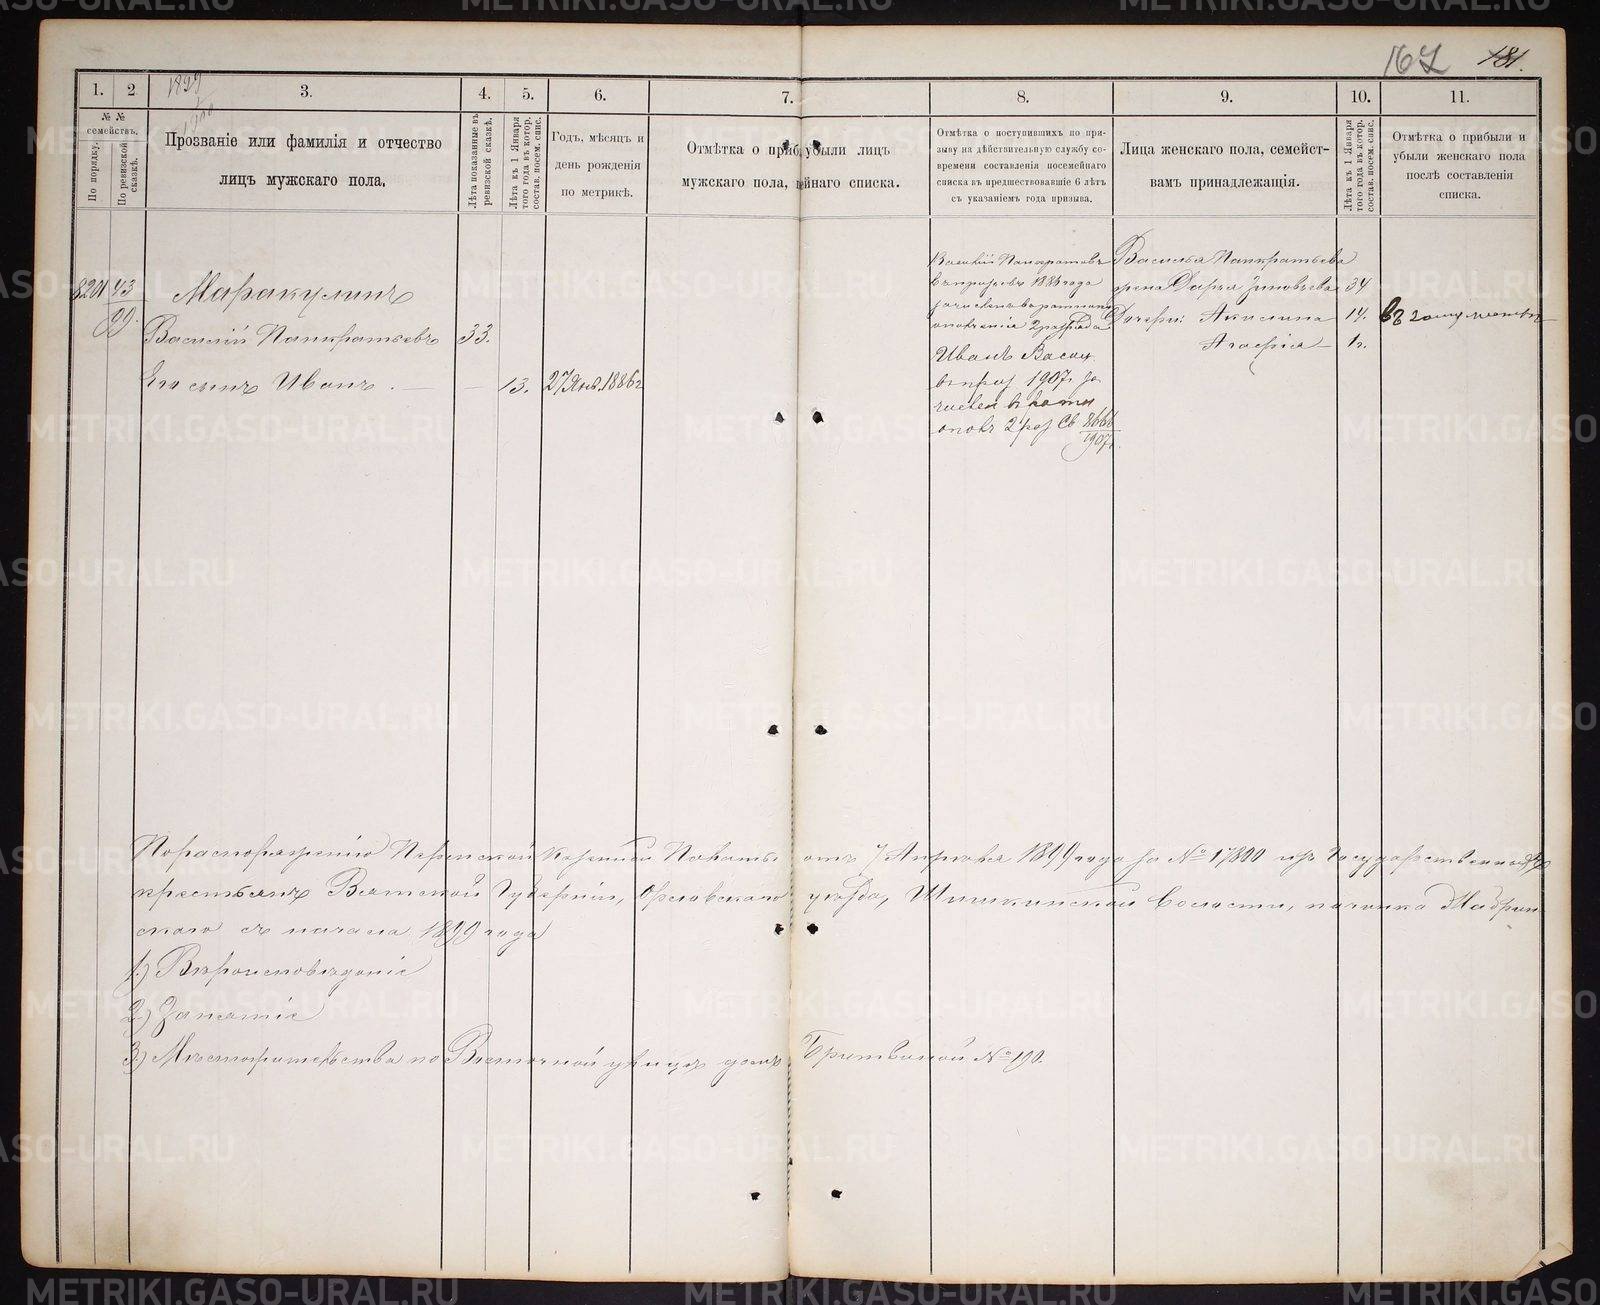 167 181.
1. 2 3. 4. 5. 6. 7. 8. 9. 10. 11.
1899
№ №
семействъ.
По порядку.
По ревизской сказкѣ.
Прозваніе или фамилія и отчество
лицъ мужскаго пола.
Лѣта показанные въ ревизской сказкѣ.
Лѣта къ 1 Января того года въ котор. состав. посем. спис.
Годъ, мѣсяцъ и
день рожденія
по метрикѣ.
Отмѣтка о приб. убыли лицъ
мужскаго пола, ейнаго списка.
Отмѣтка о поступившихъ по при-
зыву на дѣйствительную службу со-
времени составленія посемейнаго
списка въ предшествовавшіе 6 лѣтъ
съ указаніемъ года призыва.
Лица женскаго пола, семейст-
вамъ принадлежащія.
Лѣта къ 1 Января того года въ котор. состав. посем. спис.
Отмѣтка о прибыли и
убыли женскаго пола
послѣ составленія
списка.
8201 43
99.
Маракулинъ
Василій Панкратьевъ 33.
Его сынъ Иванъ. — — 13. 27 Янв. 1886 г
Василій Панкратовъ
въ призывъ 1886 года
зачисленъ въ ратники
ополченія 2 разряда
Иванъ Васил.
въ приз 1907 г за
числен в ратн
ополч 2 раз Св 8666
1907 г.
Василья Панкратьева
жена Дарья Зиновьева 34
Дочери: Акилина 14.
Агафія — 1 г.
По распоряженію Пермской Казенной Палаты отъ 7 Апрѣля 1899 года за № 17800 изъ Государственныхъ
крестьянъ Вятской Губерніи, Орловскаго уѣзда, Шишкинской волости, починка
скаго съ начала 1899 года
1.) Вѣроисповѣданіе
2.) Занятіе
3.) Мѣстожительства по Восточной улицѣ домъ № 190.
METRIKI.GASO-URAL.RU